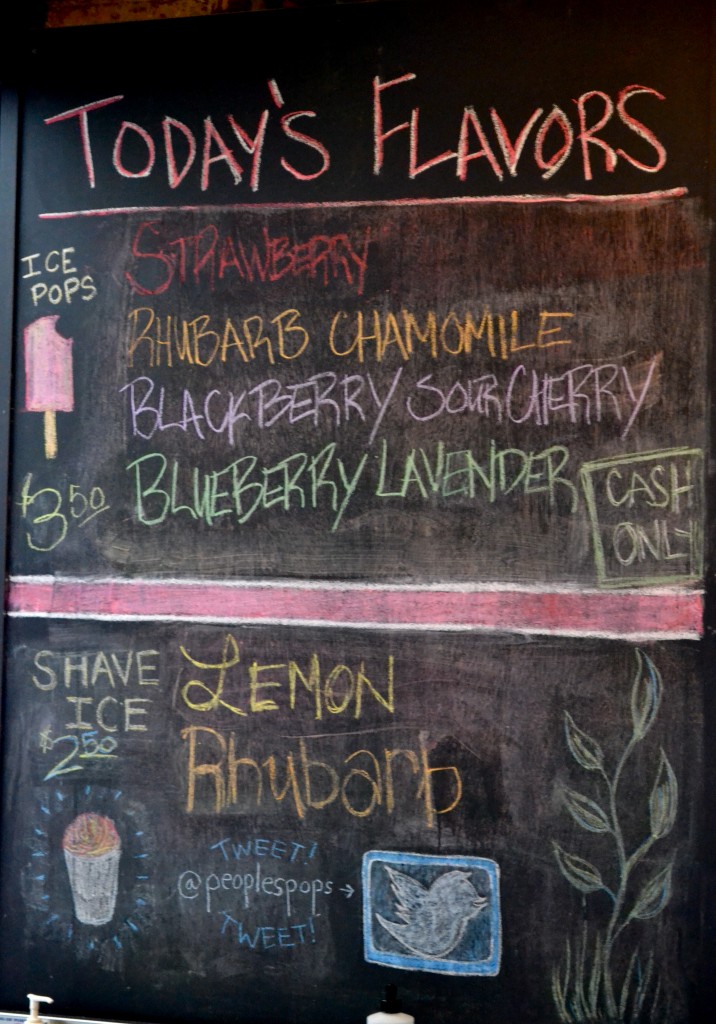 TODAY'S FLAVORS
ICE
POPS
$3.50
STRAWBERRY
RHUBARB CHAMOMILE
BLACKBERRY SOUR CHERRY
BLUEBERRY LAVENDER
CASH
ONLY
SHAVE
ICE
$2.50
LEMON
Rhubarb
TWEET!
@peoplespops →
TWEET!